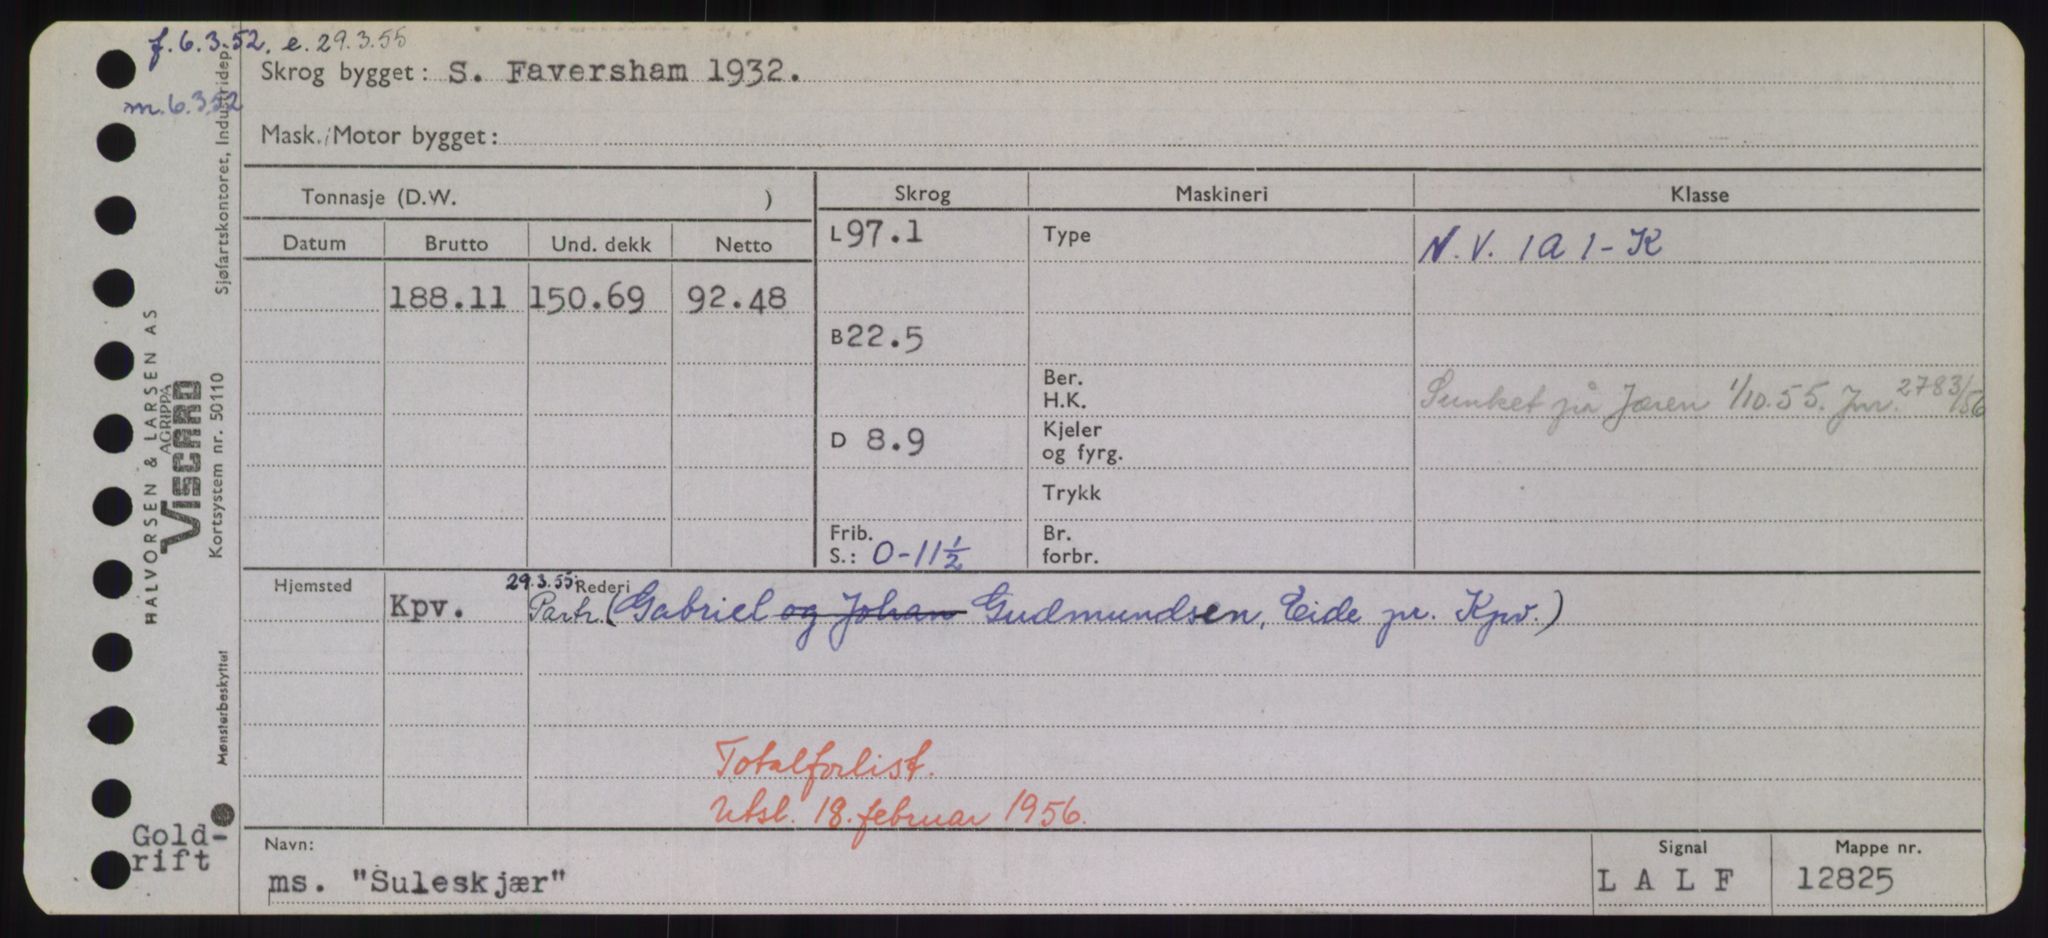 f. 6.3.52. e. 29.3.55
m. 6.3.52
Skrog bygget: S. Faversham 1932.
Mask./Motor bygget:
Tonnasje (D.W. )
Skrog
Maskineri
Klasse
Datum
Brutto
Und. dekk
Netto
188.11 150.69 92.48
L 97.1
B 22.5
D 8.9
Frib.
S.: 0-11½
Type
Ber.
H.K.
Kjeler
og fyrg.
Trykk
Br.
forbr.
N.V. 1A1-K
Sunket på Jæren 1/10.55. Jnr. 2783/56
Hjemsted
Kpv.
29.3.55: Rederi
Partr. (Gabriel og Johan Gudmundsen, Eide pr. Kpv.)
Totalforlist.
Utsl. 18. februar 1956.
Navn:
ms. "Suleskjær"
Signal
L A L F
Mappe nr.
12825
Sjøfartskontoret, Industridep.
HALVORSEN & LARSEN AS
AGRIPPA
VISCARD
Kortsystem nr. 50110
Mønsterbeskyttet
Gold-
rift